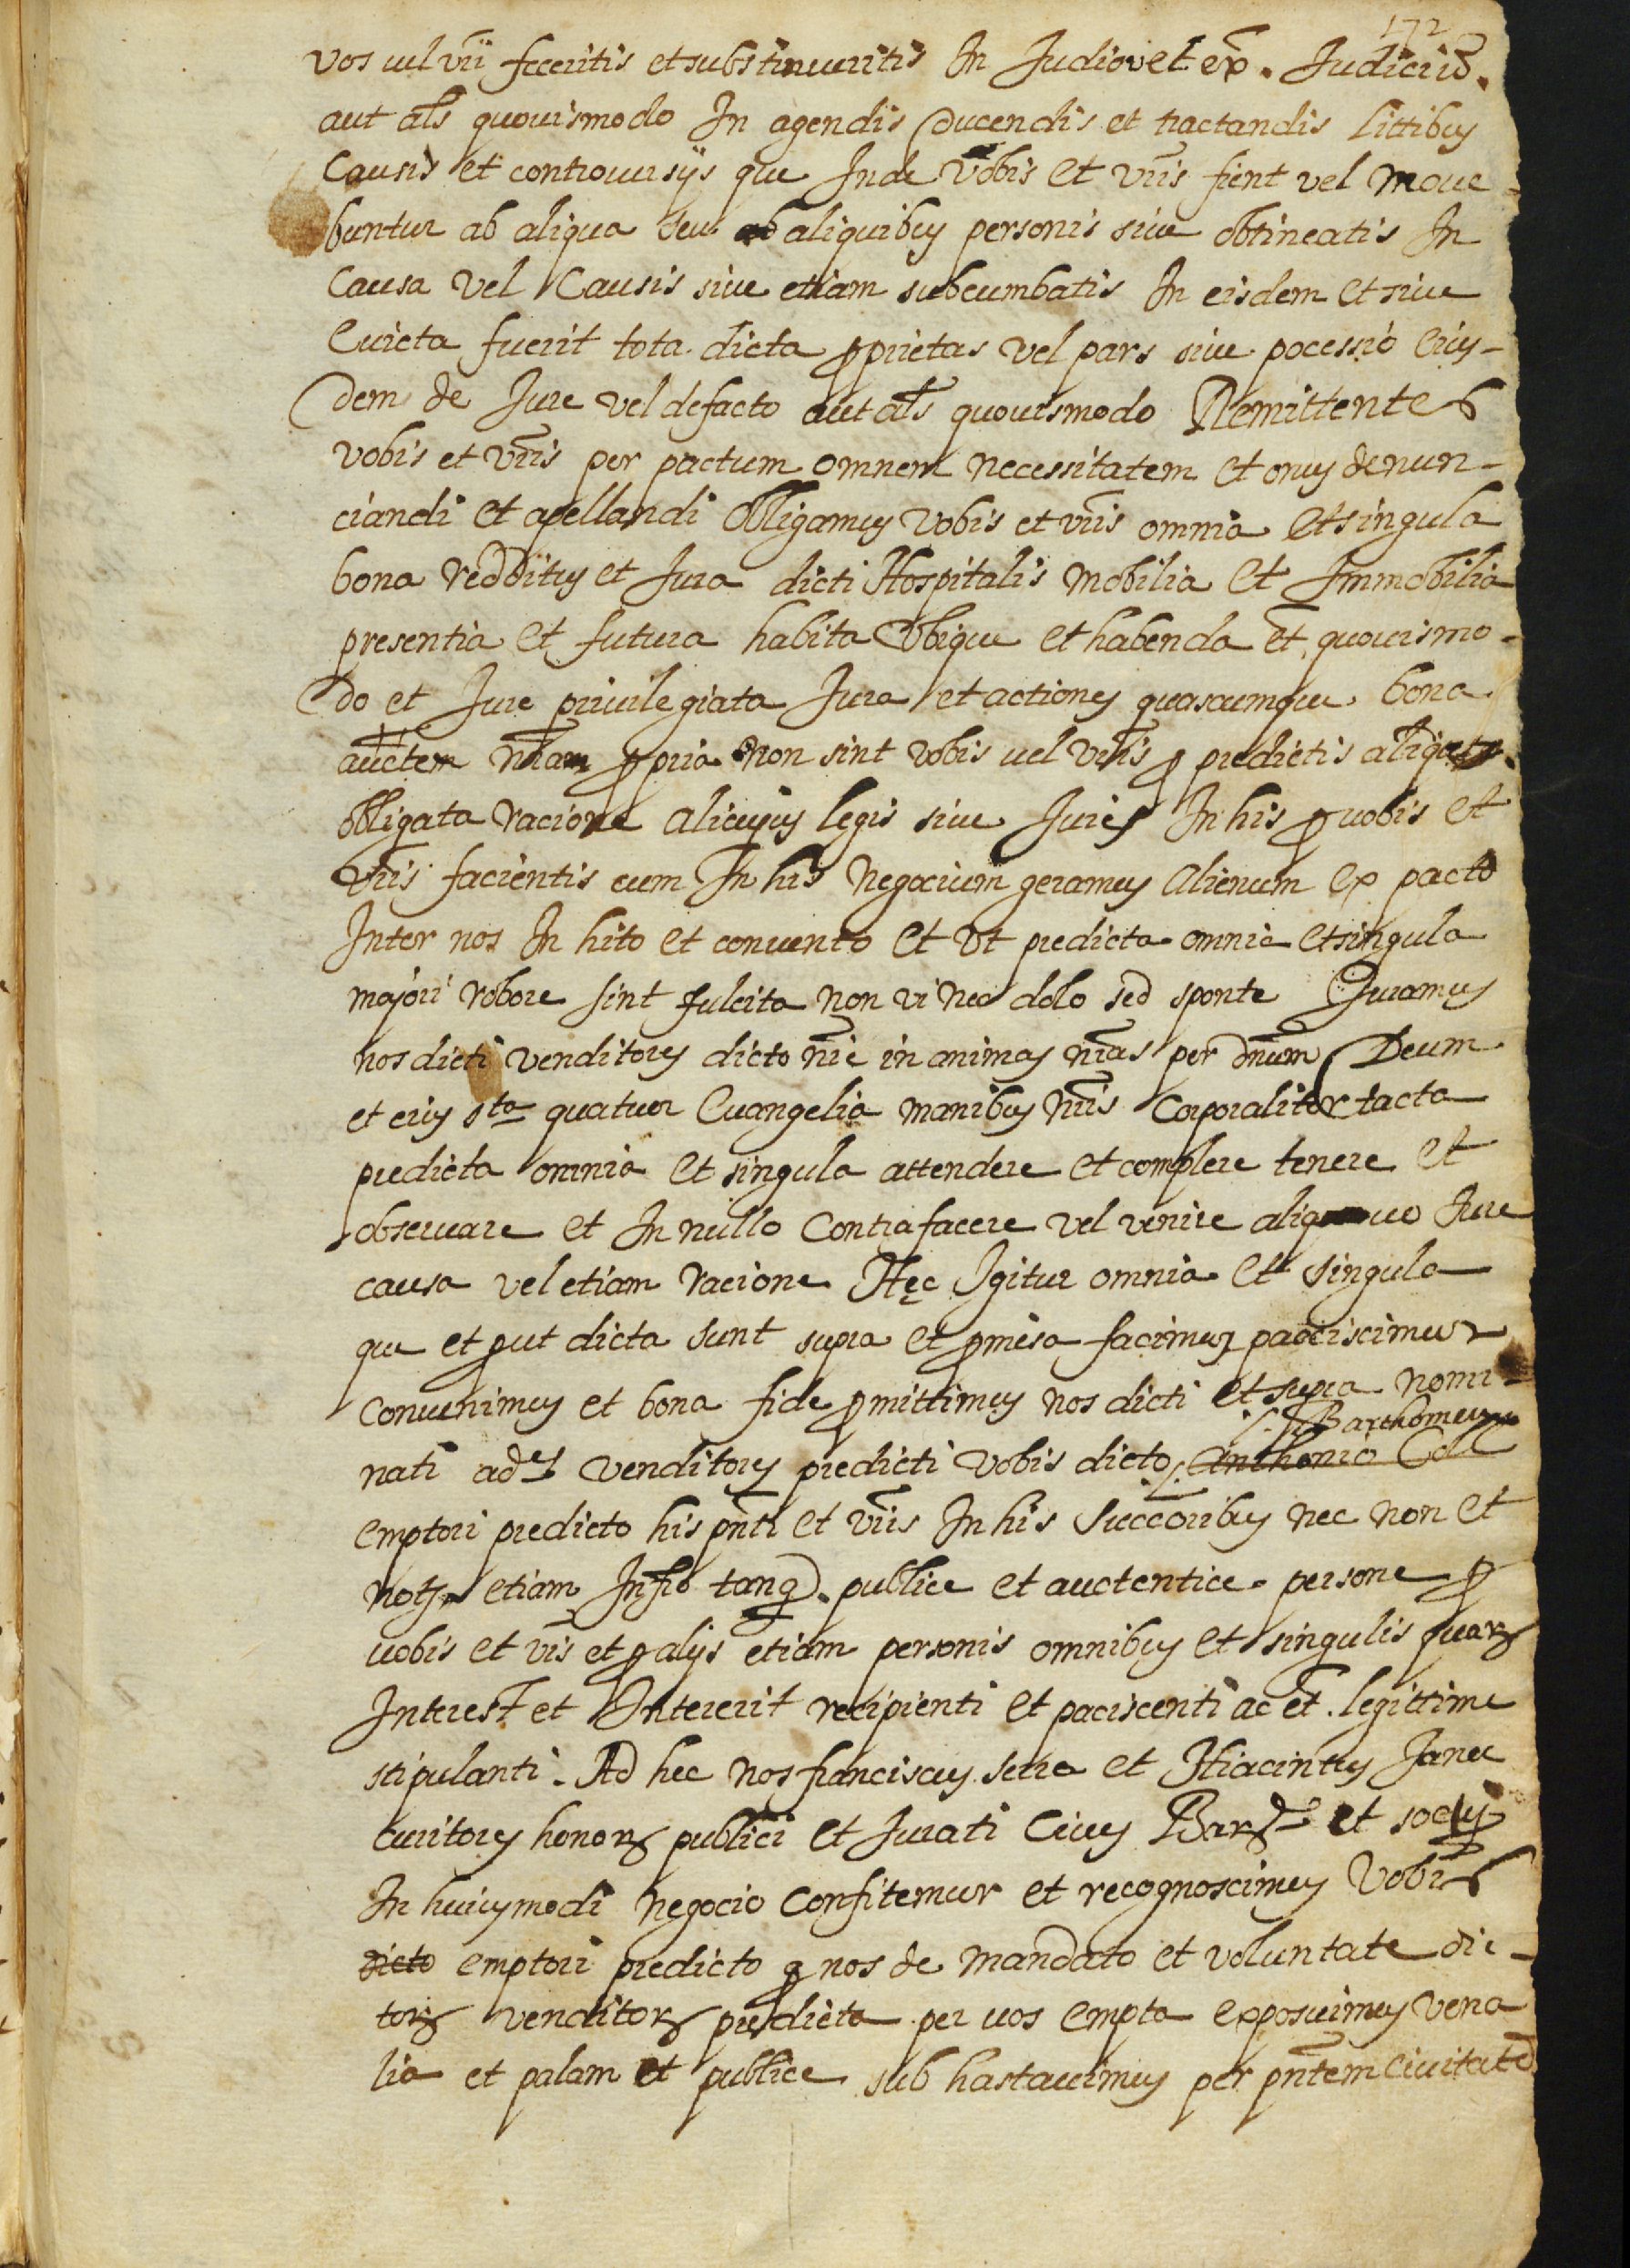 172
vos vel vr̄i feceritis et substinueritis In Judicio vel ex̄. Judiciū.
aut als̄ quouismodo In agendis Ducendis et tractandis littibus
causis et controuersijs que Inde vobis et vr̄is fient vel moue
buntur ab aliqua seu ab aliquibus personis siue obtineatis In
causa vel Causis siue etiam subcumbatis In eisdem et siue
Euicta fuerit tota dicta ꝓprietas vel pars siue pocessio eius-
dem de Jure vel de facto aut als̄ quouismodo Remittentes
vobis et vr̄is per pactum omnem necessitatem et onus denun-
ciandi et apellandi obligamus vobis et vr̄is omnia et singula
bona redditus et Jura dicti Hospitalis mobilia et Immobilia
presentia et futura habita vbique et habenda et̄. quouismo-
do et Jure priuilegiata Jura et actiones quascumque. bona
auctem nr̄am ꝓpria non sint vobis vel vr̄is ꝓ predictis
obligata racione alicujus legis siue Juris In his ꝓ vobis et
vr̄is facientis cum In his negocium geramus alienum ex pacto
Inter nos In hito et conuento et vt predicta omnia et singula
majori robore sint fulcita non vi nec dolo sed sponte Juramus
nos dicti venditores dicto nīe in animas nr̄as per dnūm Deum
et eius sta quatuor Euangelia manibus nr̄is corporaliter tacta
predicta omnia et singula attendere et complere tenere et
obseruare et In nullo contrafacere vel venire aliquo Jure
causa vel etiam racione Hęc Igitur omnia et singula
que et ꝓut dicta sunt supra et ꝓmisa facimus paciscimur
conuenimus et bona fide ꝓmittimus nos dicti et supra nomi-
./. Barthomeus
nati ades venditores predicti vobis dicto ./. Anthonio Coll
emptori predicto his pn̄ti et vr̄is In his succōribus nec non et
notō etiam Infr̄o tanq̄. publice et auctentice persone ꝓ
uobis et vr̄is et ꝓ alijs etiam personis omnibus et singulis quarꝝ
Interest et Intererit recipienti et paciscenti ac et̄. legittime
stipulanti. Ad hec nos franciscus serra et Hiacintus Janer
curitores honorꝝ publici et Jurati ciues Barne et socij
In huiusmodi negocio confitemur et recognoscimus vobis
dicto emptori predicto q̄ nos de mandato et voluntate dic-
torꝝ venditorꝝ predicta per uos empta exposuimus vena
lia et palam et publice sub hastauimus per pn̄tem ciuitatē